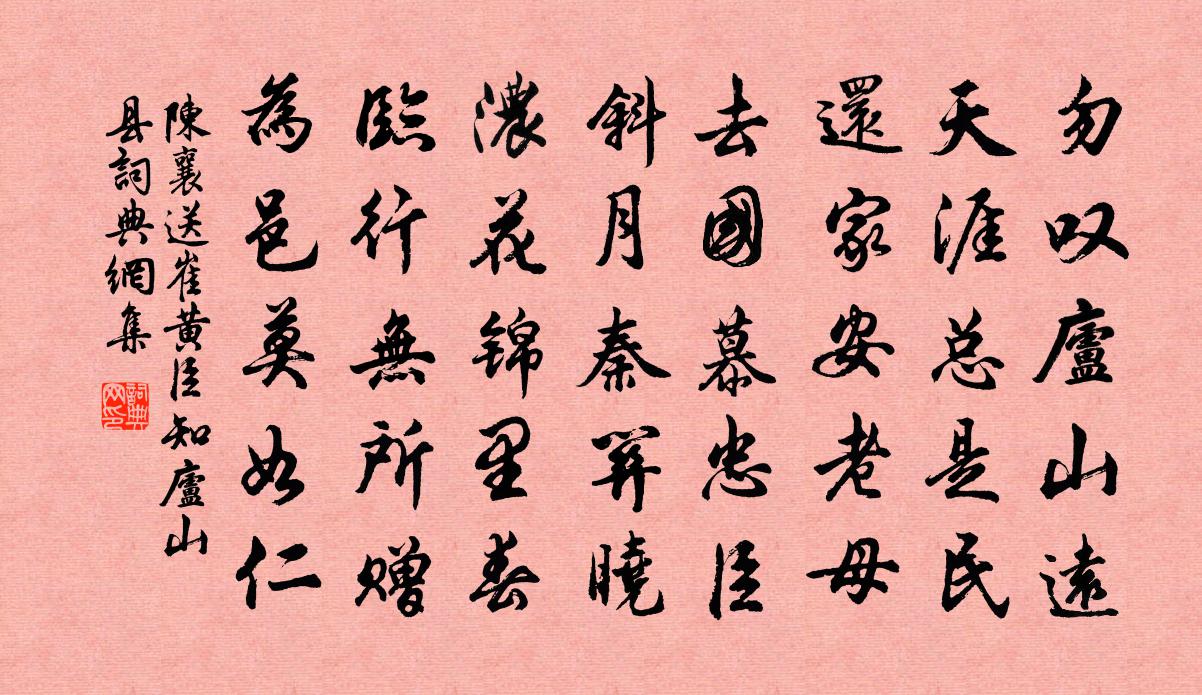 勿叹廬山遠
天涯总是民
還家安老母
去國慕忠臣
斜月秦關曉
濃花锦里春
臨行無所赠
為邑莫如仁
陳襄送崔黄臣知廬山
县詞典網集
詞典网印